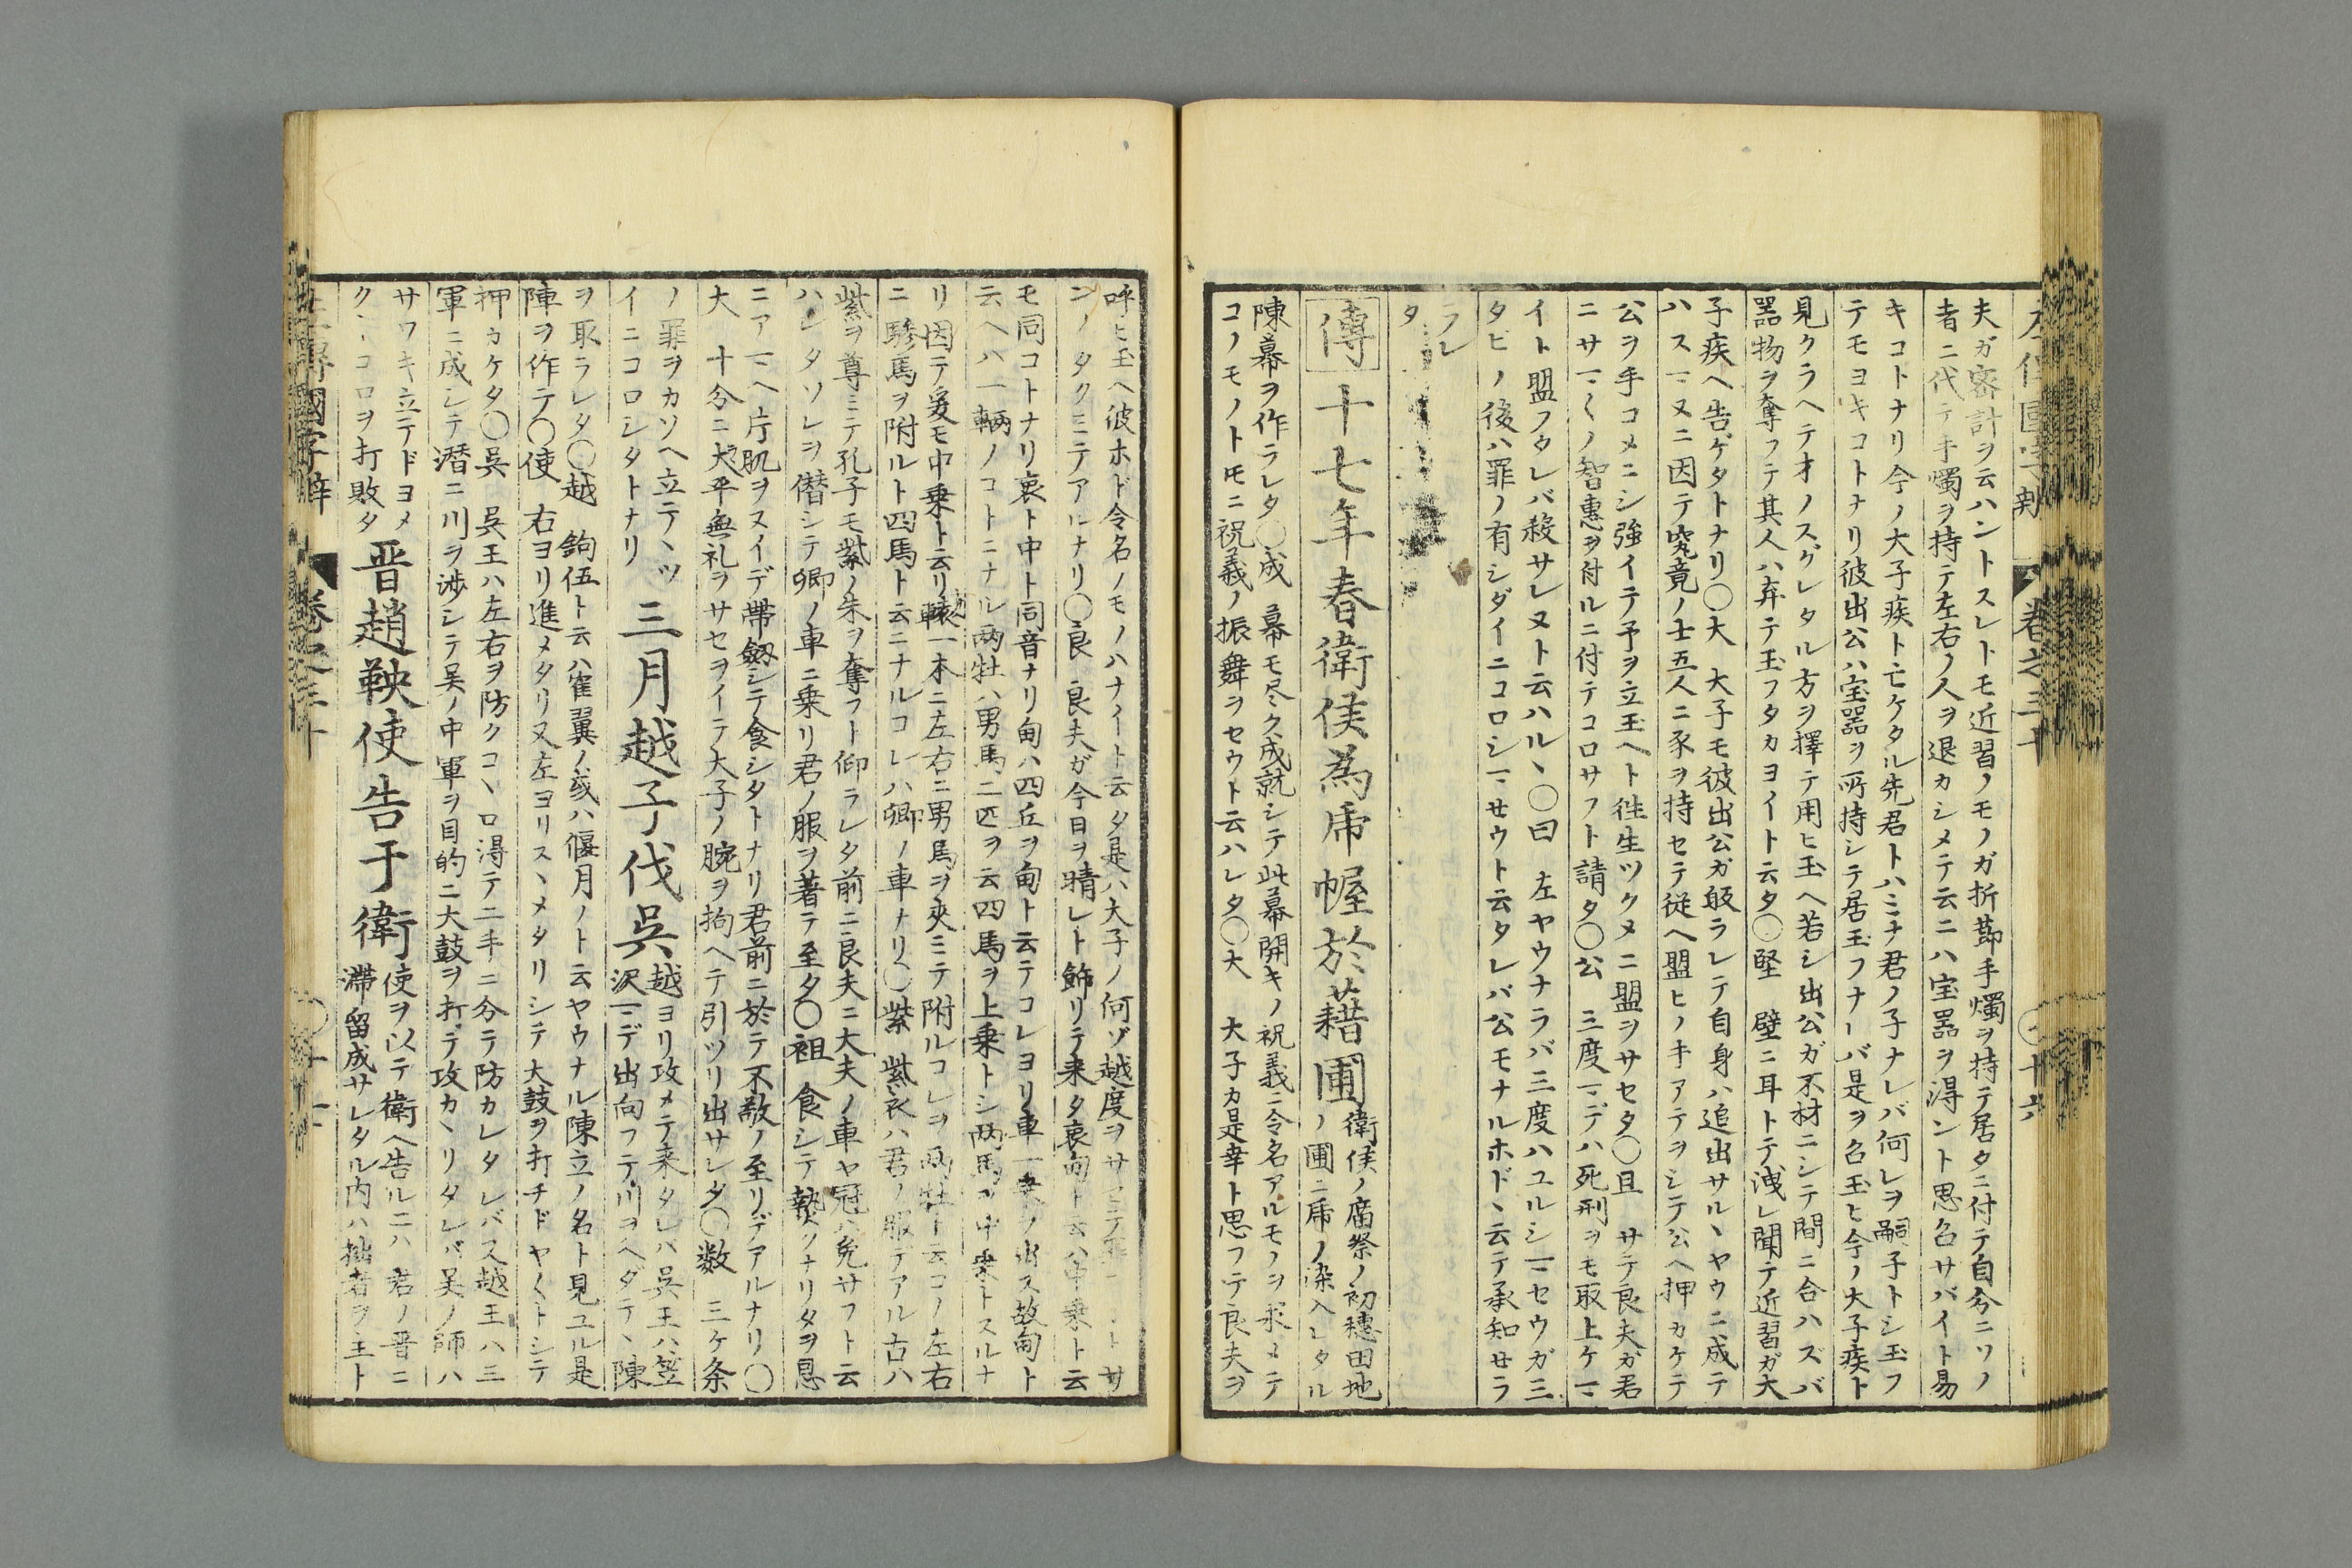 夫ガ密計ヲ云ハントスレトモ近習ノモノガ折節手燭ヲ持テ居タニ付テ自分ニソノ
者ニ代テ手燭ヲ持テ左右ノ人ヲ退カシメテ云ニハ宝器ヲ淂ント思召サバイト易
キコトナリ今ノ大子疾ト亡ケタル先君トハミナ君ノ子ナレバ何レヲ嗣子トシ玉フ
テモヨキコトナリ彼出公ハ宝器ヲ所持シテ居玉フナレバ是ヲ召玉ヒ今ノ大子疾ト
見クラヘテオノスグレタル方ヲ擇テ用ヒ玉ヘ若シ出公ガ不材ニシテ間ニ合ハズバ
器物ヲ奪フテ其人ハ弃テ玉フタカヨイト云タ〇堅 壁ニ耳トテ洩レ聞テ近習ガ大
子疾ヘ告ゲタトナリ〇大 大子モ彼出公ガ皈ラレテ自身ハ追出サルヽヤウニ成テ
ハスマヌニ因テ究竟ノ士五人ニ豕ヲ持セテ従ヘ盟ヒノキアテヲシテ公ヘ押カケテ
公ヲ手コメニシ強イテ予ヲ立玉ヘト徃生ツクメニ盟ヲサセタ〇且 サテ良夫ガ君
ニサマ〱ノ智惠ヲ付ルニ付テコロサフト請タ〇公 三度マデハ死刑ヲモ取上ケマ
イト盟フタレバ殺サレヌト云ハルヽ〇曰 左ヤウナラバ三度ハユルシマセウガ三
タビノ後ハ罪ノ有シダイニコロシマセウト云タレバ公モナルホドヽ云テ承知セラ
ラレ
タ
傳 十七年春衛侯為乕幄於藉圃 衛侯ノ廟祭ノ初穗田地
ノ圃ニ乕ノ染入レタル
陳幕ヲ作ラレタ〇成 幕モ尽ク成就シテ此幕開キノ祝義ニ令名アルモノヲ求メテ
コノモノト𪜈ニ祝義ノ振舞ヲセウト云ハレタ〇大 大子カ是幸ト思フテ良夫ヲ
呼ヒ玉ヘ彼ホド令名ノモノハナイト云タ是ハ大子ノ何ゾ越度ヲサ
ンノタクミテアルナリ〇良 良夫ガ今日ヲ晴レト飾リテ来タ衷甸ト云ハ中乗ト云
モ同コトナリ衷ト中ト同音ナリ甸ハ四丘ヲ甸ト云テコレヨリ車一乗ツ出ス故甸ト
云ヘハ一輌ノコトニナル两牡ハ男馬二匹ヲ云四馬ヲ上乗ト シ两馬ヲ中乗トスルナ
リ因テ爰モ中乗ト云リ轅一本ニ左右ニ男馬ヲ夾ミテ附ルコレヲ两牡ト云コノ左右
ニ驂馬ヲ附ルト四馬ト云ニナルコレハ卿ノ車ナリ〇紫 紫衣ハ君ノ服テアル古ハ
紫ヲ尊ミテ孔子モ紫ノ朱ヲ奪フト仰ラレタ前ニ良夫ニ大夫ノ車ヤ冠ハ免サフト云
ハレタソレヲ僣シテ卿ノ車ニ乗リ君ノ服ヲ著テ至タ〇袒 食シテ𤍠クナリタヲ息
ニアマヘ片肌ヲヌイデ帶劔シテ食シタトナリ君前ニ於テ不敬ノ至リデアルナリ〇
大 十分ニ大平無礼ヲサセヲイテ大子ノ腕ヲ拘ヘテ引ツリ出サレタ〇数 三ケ条
ノ罪ヲカソヘ立テヽツ
イニコロシタトナリ 三月越子伐吳 越ヨリ攻メテ来タレバ吳王ハ笠
沢マデ出向フテ川ヲヘダテヽ陳
ヲ取ラレタ〇越 鉤伍ト云ハ隺翼ノ或ハ偃月ノト云ヤウナル陳立ノ名ト見ユル是
陣ヲ作テ〇使 右ヨリ進メタリ又左ヨリスヽメタリシテ大鼓ヲ打チドヤ〱トシテ
押カケタ〇吳 吳王ハ左右ヲ防クコヽロ淂テ二手ニ分テ防カレタレバ又越王ハ三
軍ニ成シテ潛ニ川ヲ渉シテ吴ノ中軍ヲ目的ニ大鼓ヲ打テ攻カヽリタレバ吴ノ師ハ
サワキ立テドヨメ
クトコロヲ打敗タ 晋趙鞅使告于衛 使ヲ以テ衛ヘ告ルニハ 君ノ晋ニ
滞留成サレタル内ハ拙者ヲ主ト